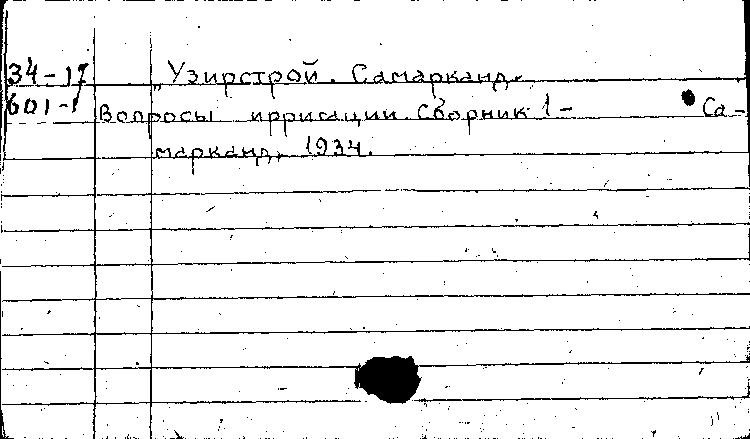 34-17 „Узирстрой. Самарканд.
601-1 Вопросы ирригации. Сборник 1- Са-
марканд, 1934.